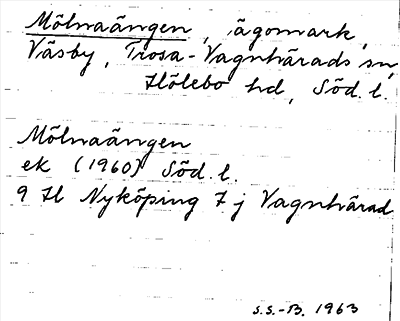 Mölnaängen, ägomark,
Väsby, Trosa-Vagnhärads sn,
Hölebo hd, Söd. l.
Mölnaängen
ek (1960) Söd. l.
9 H Nyköping 7 j Vagnhärad
S.S.-B. 1963